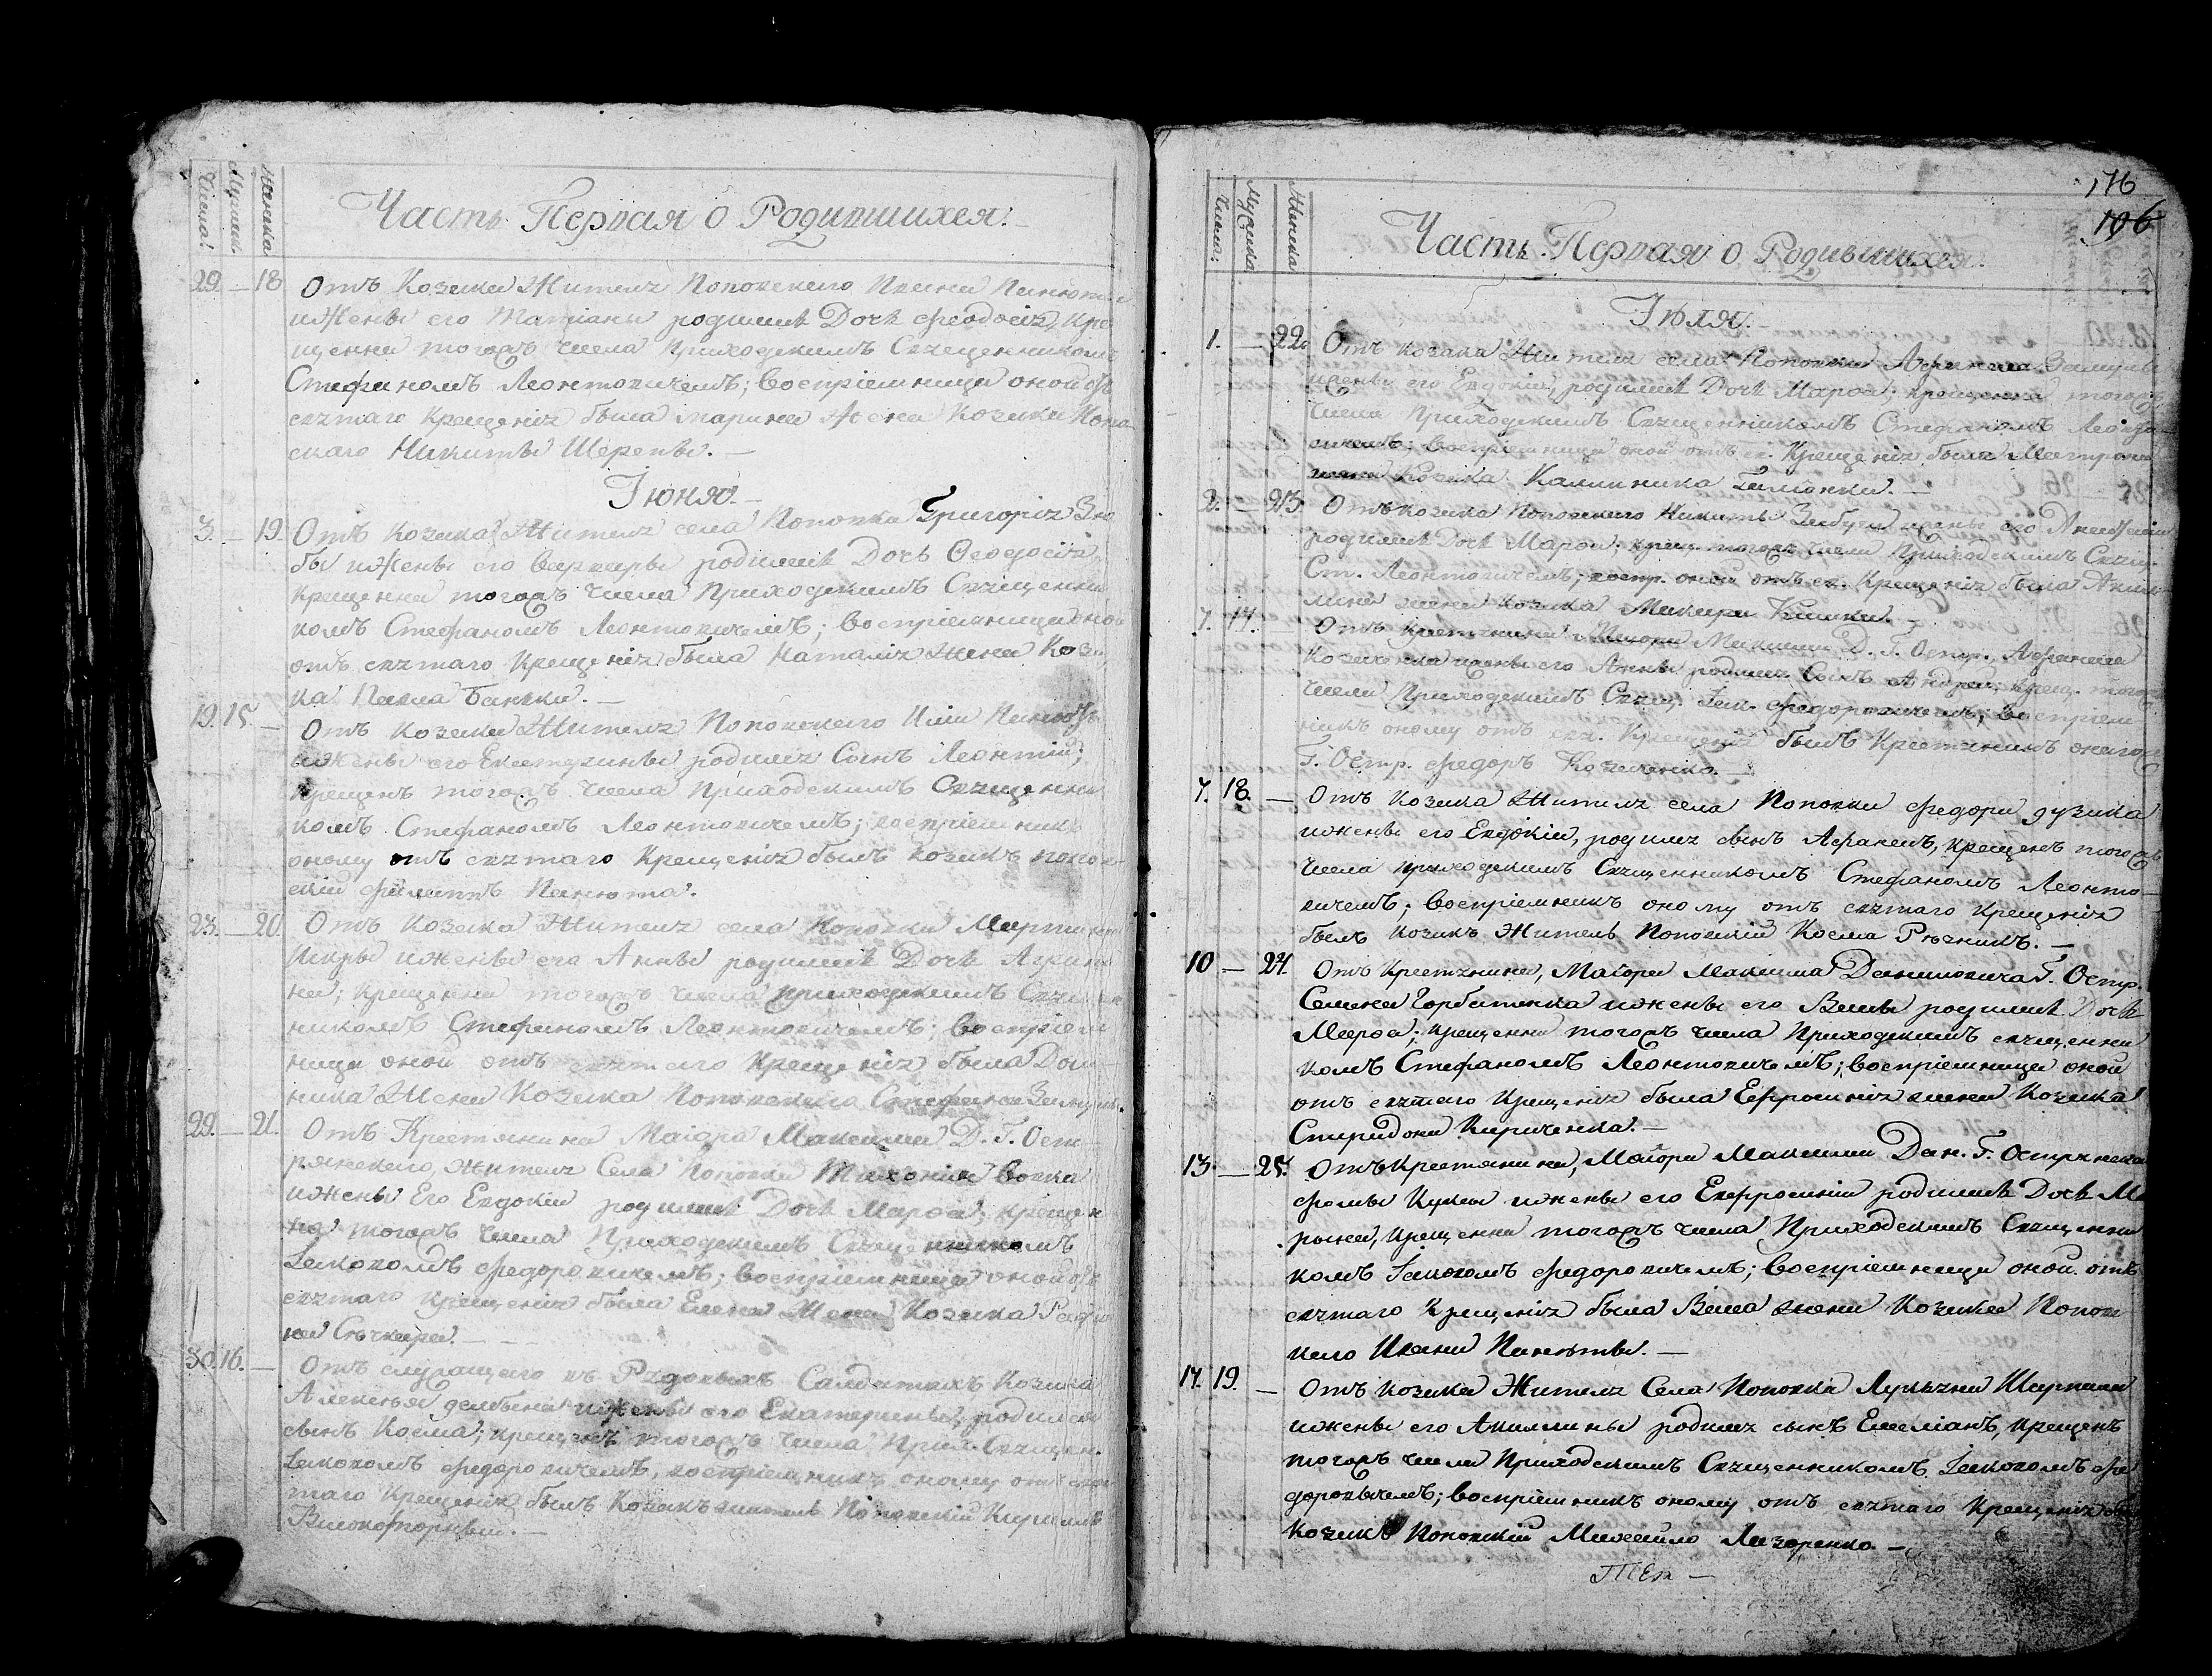 Числа
Мужеск
Женска
Часть Первая о Родившихся.
29. — 18
Отъ Козака Жителя Поповского Ивана Панюти
и жены его Татіаны родилась Дочь Феодосія, кре
щенна тогожъ числа Приходскимъ Священникомъ
Стефаномъ Леонтовичемъ; воспріемница оной отъ
святаго крещенія была Марина Жена Козака Попо
скаго Никиты Шерепы. —
Іюня. —
3. — 19.
Отъ Козака Жителя села Поповки Григорія Зю
бы и жены его Варвары родилась Дочь Феодосія
крещенна тогожъ числа Приходскимъ Священни
комъ Стефаномъ Леонтовичемъ; воспріемница оной
отъ святаго крещенія была Наталія Жена Коза
ка Павла Баньки. —
19. 15. —
Отъ Козака Жителя Поповского Иліи
и жены его Екатерины родился Сынъ Леонтій;
крещенъ тогожъ числа Приходскимъ Священни
комъ Стефаномъ Леонтовичемъ; воспріемникъ
оному отъ святаго крещенія былъ козакъ попов
скій Филиппъ Панюта.
23. — 20.
Отъ Козака Жителя села Поповки Мартина
Искры и жены его Анны родилась Дочь Агрипи
на; крещенна тогожъ числа приходскимъ Священ
никомъ Стефаномъ Леонтовичемъ; воспріем
ница оной отъ святаго крещенія была Дом
ника Жена Козака Поповского Стефана
29. — 21.
Отъ Крестянина Маіора Максима Д. Г. Остр
рянского, жителя Села Поповки Тихона Вовка
и жены Его Евдокіи родилась Дочь Марфа; крещен
на тогожъ числа Приходскимъ Священникомъ
Іаковомъ Федоровичемъ; воспріемница оной отъ
святаго крещенія была Елена Жена Козака
на Сѣчкаря. —
30. 16. —
Отъ служащего въ Рядовыхъ Салдатахъ Козака
Алексѣя и жены его Екатерины, родился
сынъ Косма; крещенъ тогожъ числа Прих. Священ.
Іаковомъ Федоровичемъ, воспріемникъ оному отъ свя
таго крещенія былъ Козакъ житель Поповскій Кириллъ
176
196
Числа
Мужеска
Женска
Часть Первая о Родившихся.
Іюля. —
1. — 22.
Отъ козака Жителя села Поповки Афанасія
и жены его Евдокіи, родилась Дочь Марфа; крещенна тогожъ
числа Приходскимъ Священникомъ Стефаномъ Леонто
вичемъ; воспріемница оной отъ св. Крещенія была Матрона
жена Козака Калиника Гамонки. —
2. — 23.
Отъ козака Поповского Никиты и жены его Анастасіи
родилась Дочь Марфа; крещ. тогожъ числа Приходскимъ Свящ.
Ст. Леонтовичемъ; воспр. оной отъ св. Крещенія была Акили
лина жена козака Макара Кишки. —
7. 17. —
Отъ крестянина Маіора Максима Д. Г. Остр., Афанасія
Козаченка и жены его Анны родился Сынъ Андрей; крещ. тогожъ
числа Приходскимъ Свящ. Іак. Федоровичемъ; воспріем
никъ оному отъ свя. Крещенія былъ Крестянинъ оного
Г. Остр. Федоръ Козаченко. —
7. 18. —
Отъ Козака Жителя села Поповки Федора Дузика
и жены его Евдокіи, родился сынъ Афанасъ, крещенъ тогожъ
числа приходскимъ Священникомъ Стефаномъ Леонто
вичемъ; воспріемникъ оному отъ святаго крещенія
былъ козакъ Житель Поповскій Косма Рѣзникъ. —
10 — 24.
Отъ Крестянина, Маіора Максима Даниловича Г. Остр.
Семена Горбатенка и жены его Васы родилась Дочь
Марфа; крещенна тогожъ числа Приходскимъ священни
комъ Стефаномъ Леонтовичемъ; воспріемница оной
отъ святаго Крещенія была Ефросинія жена Козака
Спиридона Кириченка. —
13. — 25.
Отъ крестянина, Маіора Максима Дан. Г. Острянска
Фомы Куксы и жены его Евфросиніи родилась Дочь Ма
рына, Крещенна тогожъ числа, Приходскимъ Священни
комъ Іаковомъ Федоровичемъ; воспріемница оной отъ
святаго Крещенія была Васа жена Козака Попов
кого Ивана Панюты. —
17. 19. —
Отъ козака Жителя Села Поповки Лукіана
и жены его Акилины родился сынъ Емеліанъ, крещенъ
тогожъ числа Приходскимъ Священникомъ Іаковомъ Фе
доровичемъ; воспріемникъ оному отъ святаго Крещенія
козакъ Поповскій Михайло Лазоренко. —